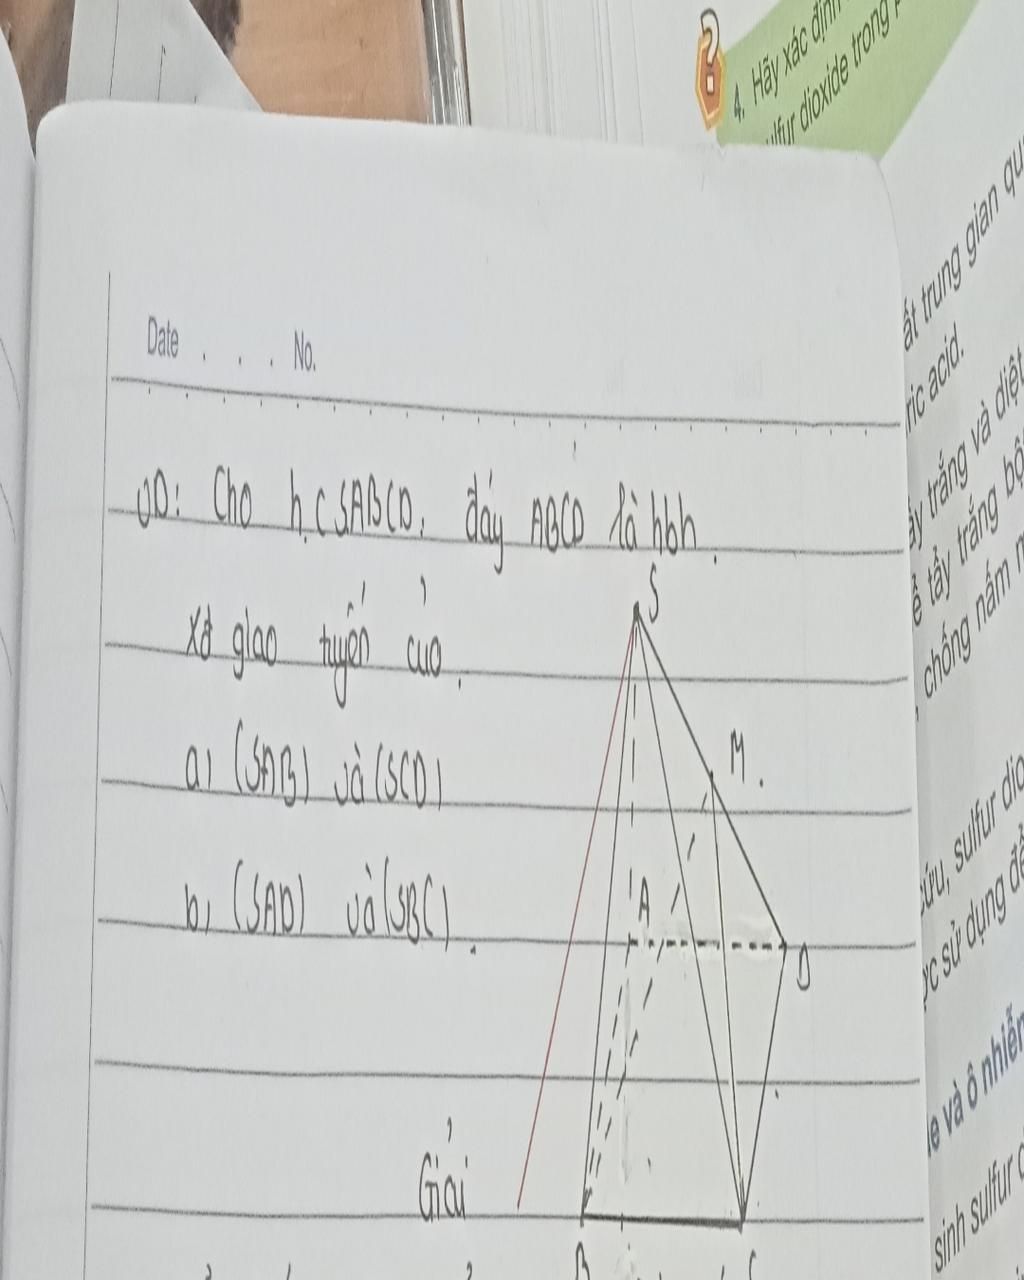 4. Hãy xác định
sulfur dioxide trong
ất trung gian qu
ric acid.
ẩy trắng và diệt
ể tẩy trắng bộ
, chống nấm m
cứu, sulfur dio
ợc sử dụng để
e và ô nhiễm
sinh sulfur
Date . . . No.
VD: Cho h.c SABCD, đáy ABCD là hbh.
Xđ giao tuyến của.
a) (SAB) và (SCD)
b) (SAD) và (SBC).
Giải
S
M.
A
D
B
C